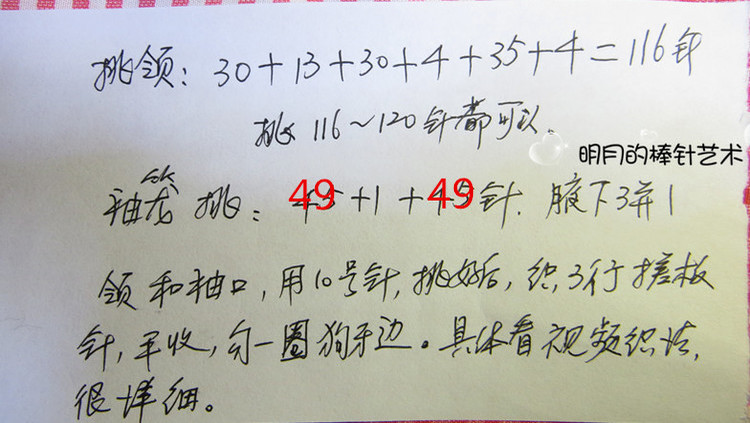 挑领：30+13+30+4+35+4=116针
挑116~120针都可以。
明月的棒针艺术
袖笼挑：49+1+49针.腋下3并1
领和袖口，用10号针，挑好后，织3行搓板
针，平收，勾一圈狗牙边。具体看视频织法，
很详细。